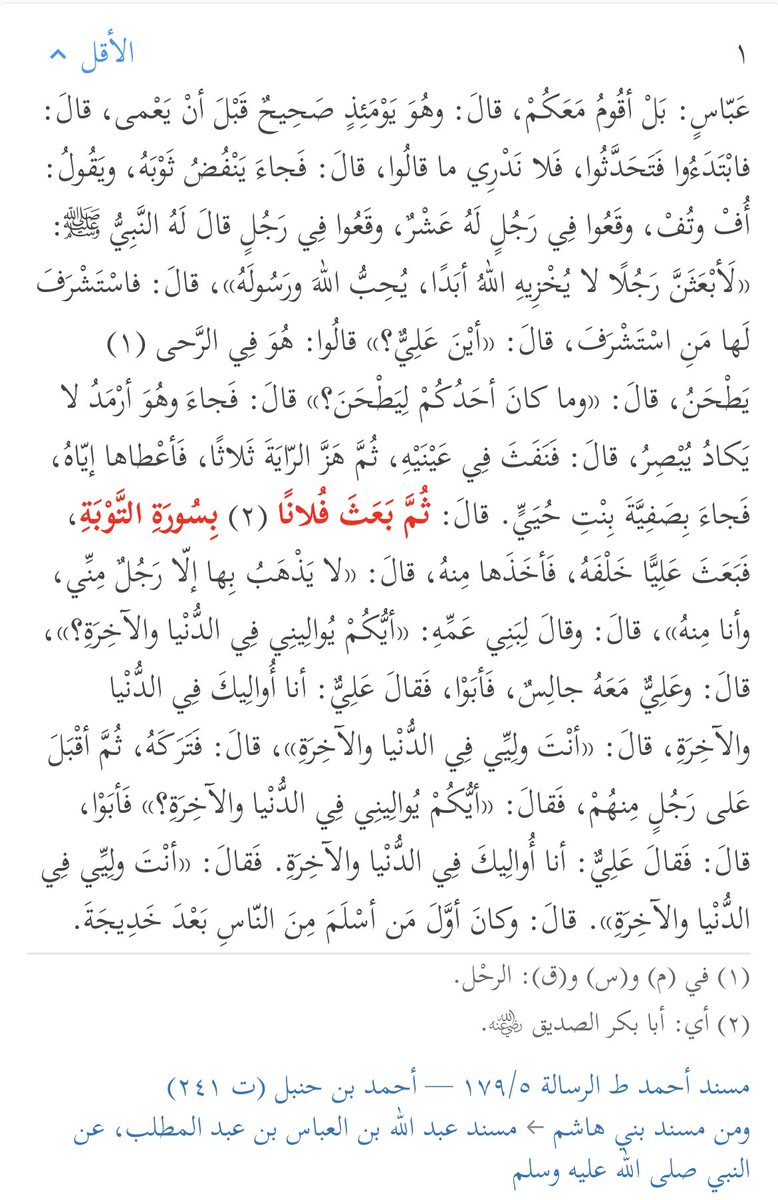 ١ الأقل
عَبّاسٍ: بَلْ أقُومُ مَعَكُمْ، قالَ: وهُوَ يَوْمَئِذٍ صَحِيحٌ قَبْلَ أنْ يَعْمى، قالَ:
فابْتَدَءُوا فَتَحَدَّثُوا، فَلا نَدْرِي ما قالُوا، قالَ: فَجاءَ يَنْفُضُ ثَوْبَهُ، ويَقُولُ:
أُفْ وتُفْ، وقَعُوا فِي رَجُلٍ لَهُ عَشْرٌ، وقَعُوا فِي رَجُلٍ قالَ لَهُ النَّبِيُّ ﷺ:
«لَأبْعَثَنَّ رَجُلًا لا يُخْزِيهِ اللهُ أبَدًا، يُحِبُّ اللهَ ورَسُولَهُ»، قالَ: فاسْتَشْرَفَ
لَها مَنِ اسْتَشْرَفَ، قالَ: «أيْنَ عَلِيٌّ؟» قالُوا: هُوَ فِي الرَّحى (١)
يَطْحَنُ، قالَ: «وما كانَ أحَدُكُمْ لِيَطْحَنَ؟» قالَ: فَجاءَ وهُوَ أرْمَدُ لا
يَكادُ يُبْصِرُ، قالَ: فَنَفَثَ فِي عَيْنَيْهِ، ثُمَّ هَزَّ الرّايَةَ ثَلاثًا، فَأعْطاها إيّاهُ،
فَجاءَ بِصَفِيَّةَ بِنْتِ حُيَيٍّ. قالَ: ثُمَّ بَعَثَ فُلانًا (٢) بِسُورَةِ التَّوْبَةِ،
فَبَعَثَ عَلِيًّا خَلْفَهُ، فَأخَذَها مِنهُ، قالَ: «لا يَذْهَبُ بِها إلّا رَجُلٌ مِنِّي،
وأنا مِنهُ»، قالَ: وقالَ لِبَنِي عَمِّهِ: «أيُّكُمْ يُوالِينِي فِي الدُّنْيا والآخِرَةِ؟»،
قالَ: وعَلِيٌّ مَعَهُ جالِسٌ، فَأبَوْا، فَقالَ عَلِيٌّ: أنا أُوالِيكَ فِي الدُّنْيا
والآخِرَةِ، قالَ: «أنْتَ ولِيِّي فِي الدُّنْيا والآخِرَةِ»، قالَ: فَتَرَكَهُ، ثُمَّ أقْبَلَ
عَلى رَجُلٍ مِنهُمْ، فَقالَ: «أيُّكُمْ يُوالِينِي فِي الدُّنْيا والآخِرَةِ؟» فَأبَوْا،
قالَ: فَقالَ عَلِيٌّ: أنا أُوالِيكَ فِي الدُّنْيا والآخِرَةِ. فَقالَ: «أنْتَ ولِيِّي فِي
الدُّنْيا والآخِرَةِ». قالَ: وكانَ أوَّلَ مَن أسْلَمَ مِنَ النّاسِ بَعْدَ خَدِيجَةَ.
(١) في (م) و(س) و(ق): الرحْل.
(٢) أي: أبا بكر الصديق ﵁.
مسند أحمد ط الرسالة ٥/‏١٧٩ — أحمد بن حنبل (ت ٢٤١)
ومن مسند بني هاشم ← مسند عبد الله بن العباس بن عبد المطلب، عن
النبي صلى الله عليه وسلم